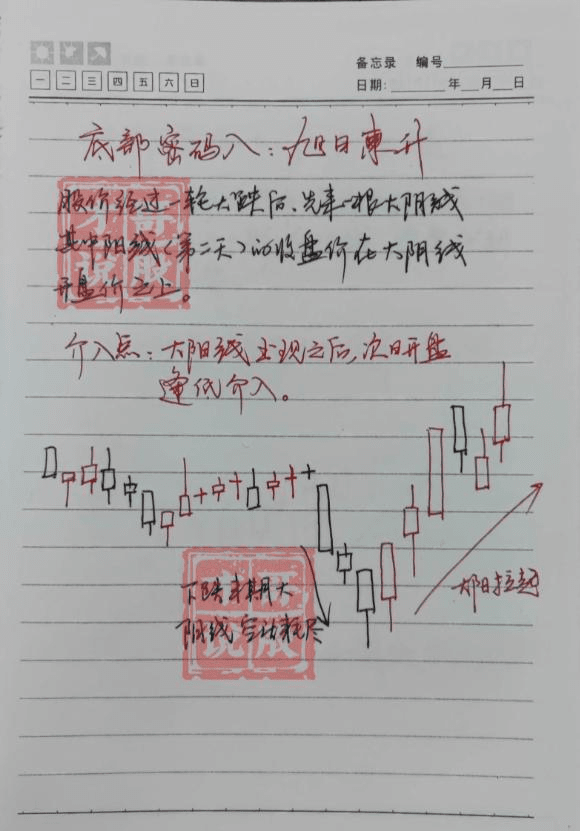 备忘录 编号
一 二 三 四 五 六 日
日期: 年 月 日
底部密码八：旭日東升
股价经过一轮大跌后、先来一根大阴线
其中阳线(第二天)的收盘价在大阴线
开盘价之上。
介入点：大阳线出现之后,次日开盘
逢低介入。
下跌末期大
阴线 空方耗尽
大阳拉起